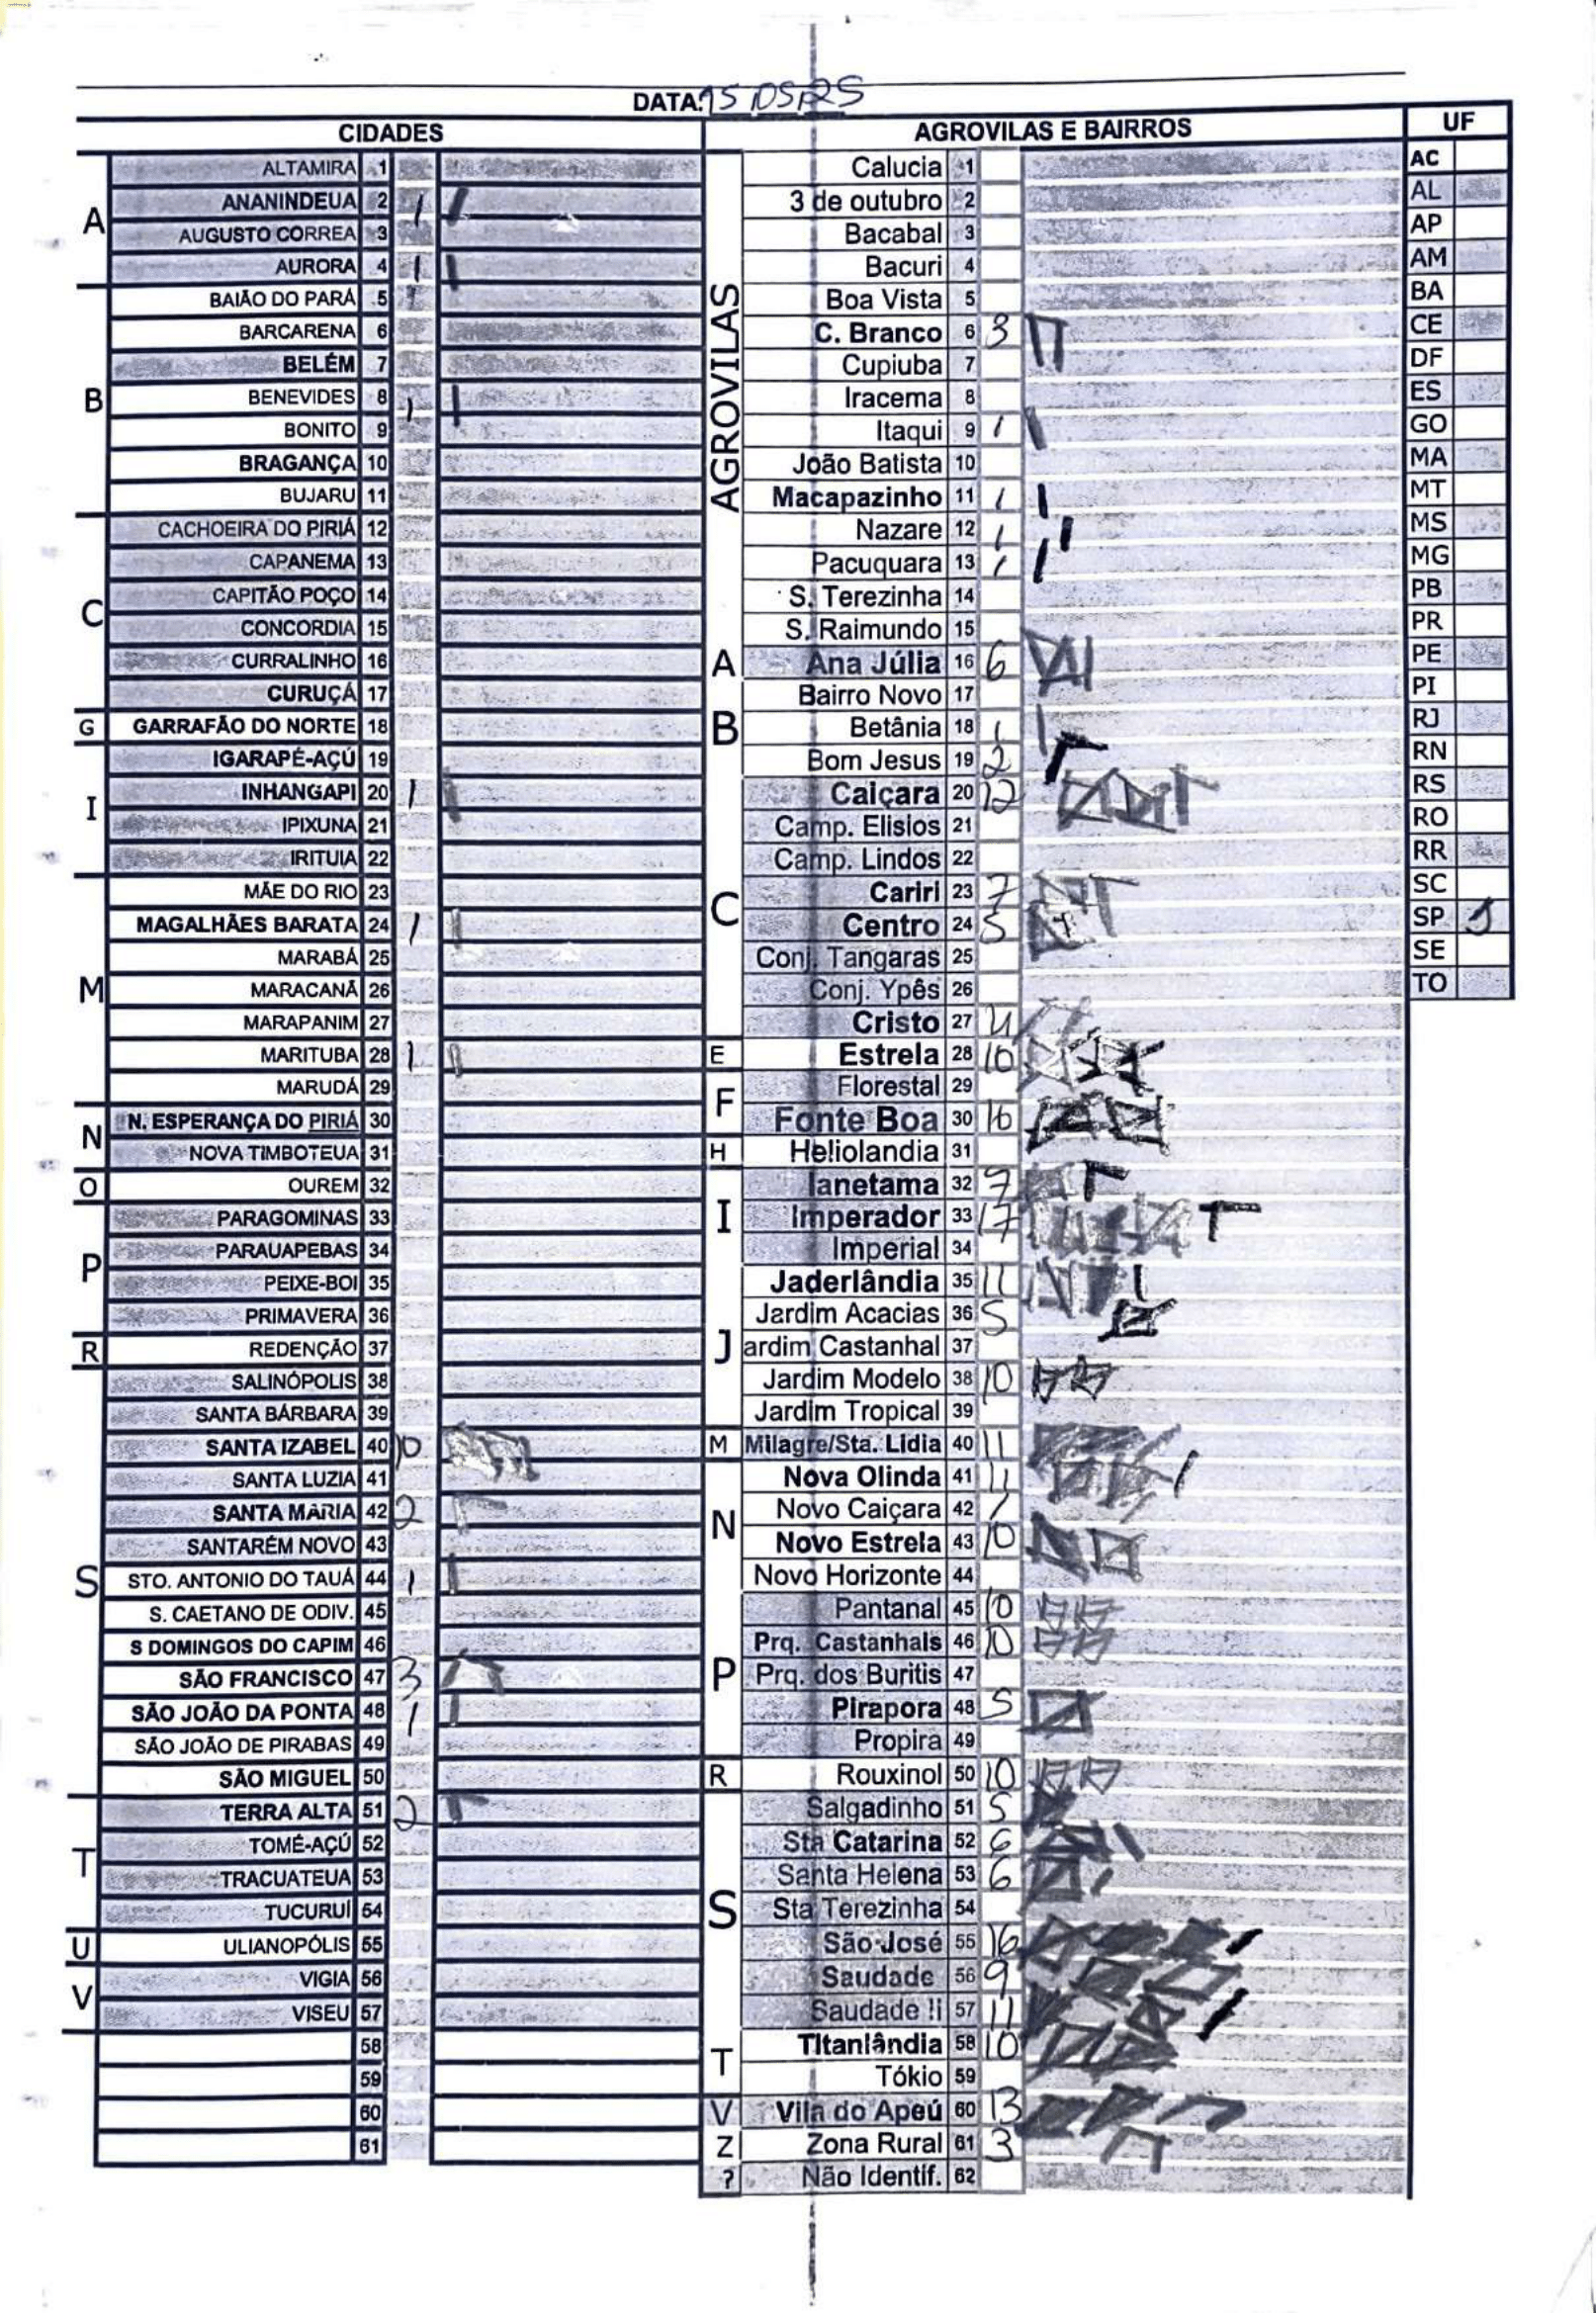 DATA: 15 05 25
CIDADES
A
ALTAMIRA 1
ANANINDEUA 2 1
AUGUSTO CORREA 3
AURORA 4 1
B
BAIÃO DO PARÁ 5
BARCARENA 6
BELÉM 7
BENEVIDES 8 1
BONITO 9
BRAGANÇA 10
BUJARU 11
C
CACHOEIRA DO PIRIÁ 12
CAPANEMA 13
CAPITÃO POÇO 14
CONCORDIA 15
CURRALINHO 16
CURUÇÁ 17
G
GARRAFÃO DO NORTE 18
I
IGARAPÉ-AÇÚ 19
INHANGAPI 20 1
IPIXUNA 21
IRITUIA 22
M
MÃE DO RIO 23
MAGALHÃES BARATA 24 1
MARABÁ 25
MARACANÃ 26
MARAPANIM 27
MARITUBA 28 1
MARUDÁ 29
N
N. ESPERANÇA DO PIRIÁ 30
NOVA TIMBOTEUA 31
O
OUREM 32
P
PARAGOMINAS 33
PARAUAPEBAS 34
PEIXE-BOI 35
PRIMAVERA 36
R
REDENÇÃO 37
S
SALINÓPOLIS 38
SANTA BÁRBARA 39
SANTA IZABEL 40 10
SANTA LUZIA 41
SANTA MARIA 42 2
SANTARÉM NOVO 43
STO. ANTONIO DO TAUÁ 44 1
S. CAETANO DE ODIV. 45
S DOMINGOS DO CAPIM 46
SÃO FRANCISCO 47 3
SÃO JOÃO DA PONTA 48 1
SÃO JOÃO DE PIRABAS 49
SÃO MIGUEL 50
T
TERRA ALTA 51 2
TOMÉ-AÇÚ 52
TRACUATEUA 53
TUCURUÍ 54
U
ULIANOPÓLIS 55
V
VIGIA 56
VISEU 57
58
59
60
61
AGROVILAS E BAIRROS
AGROVILAS
Calucia 1
3 de outubro 2
Bacabal 3
Bacuri 4
Boa Vista 5
C. Branco 6 3
Cupiuba 7
Iracema 8
Itaqui 9 1
João Batista 10
Macapazinho 11 1
Nazare 12 1
Pacuquara 13 1
S. Terezinha 14
S. Raimundo 15
A
Ana Júlia 16 6
B
Bairro Novo 17
Betânia 18 1
Bom Jesus 19 2
C
Caiçara 20 12
Camp. Elisios 21
Camp. Lindos 22
Cariri 23 7
Centro 24 5
Conj. Tangaras 25
Conj. Ypês 26
Cristo 27 4
E
Estrela 28 10
F
Florestal 29
Fonte Boa 30 16
H
Heliolandia 31
I
Ianetama 32 7
Imperador 33 17
Imperial 34
J
Jaderlândia 35 11
Jardim Acacias 36 5
ardim Castanhal 37
Jardim Modelo 38 10
Jardim Tropical 39
M
Milagre/Sta. Lidia 40 11
N
Nova Olinda 41 11
Novo Caiçara 42 1
Novo Estrela 43 10
Novo Horizonte 44
P
Pantanal 45 10
Prq. Castanhais 46 10
Prq. dos Buritis 47
Pirapora 48 5
Propira 49
R
Rouxinol 50 10
S
Salgadinho 51 5
Sta Catarina 52 6
Santa Helena 53 6
Sta Terezinha 54
São José 55 16
Saudade 56 9
Saudade Ii 57 11
T
Titanlândia 58 10
Tókio 59
V
Vila do Apeú 60 13
Z
Zona Rural 61 3
?
Não Identif. 62
UF
AC
AL
AP
AM
BA
CE
DF
ES
GO
MA
MT
MS
MG
PB
PR
PE
PI
RJ
RN
RS
RO
RR
SC
SP 1
SE
TO